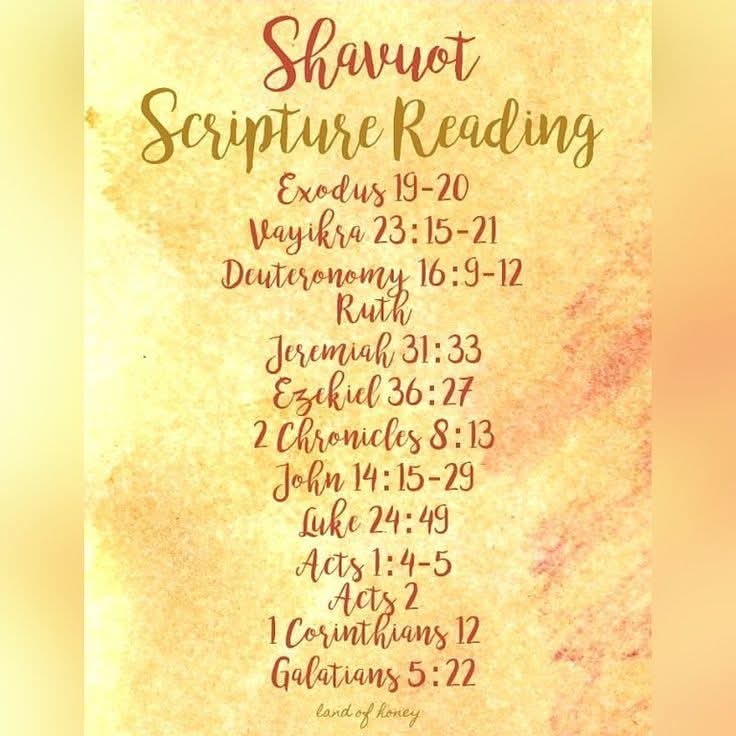 Shavuot
Scripture Reading
Exodus 19-20
Vayikra 23:15-21
Deuteronomy 16:9-12
Ruth
Jeremiah 31:33
Ezekiel 36:27
2 Chronicles 8:13
John 14:15-29
Luke 24:49
Acts 1:4-5
Acts 2
1 Corinthians 12
Galatians 5:22
land of honey